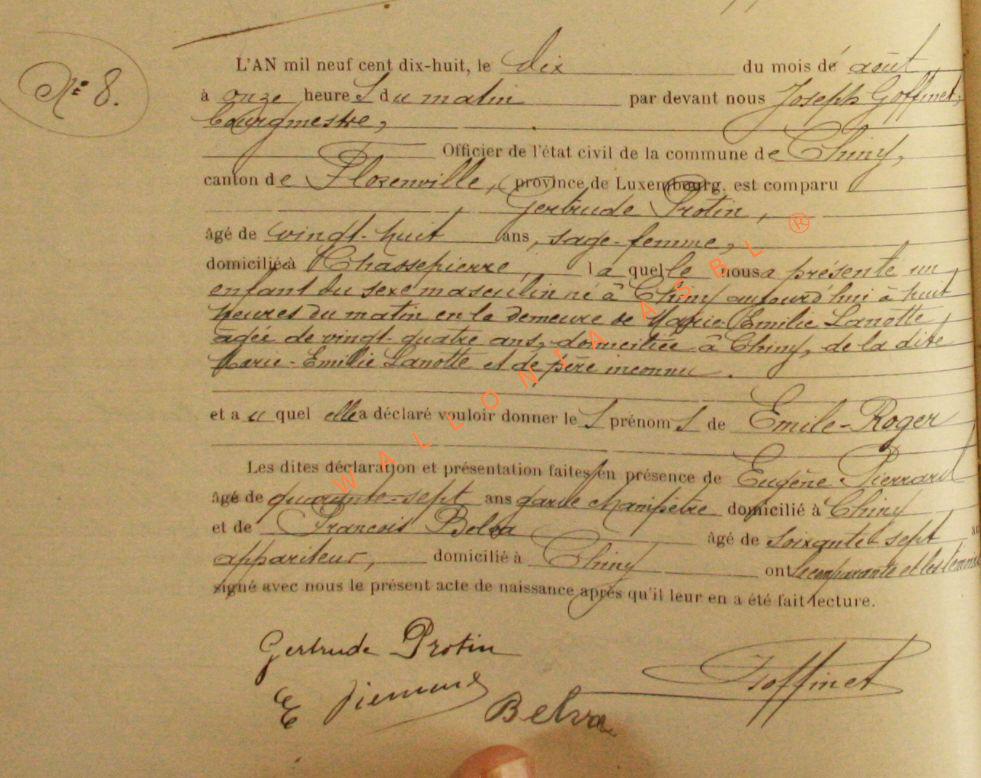 N° 8.
L'AN mil neuf cent dix-huit, le dix du mois de août
à onze heures du matin par devant nous Joseph Goffinet,
bourgmestre,
Officier de l'état civil de la commune de Chiny,
canton de Florenville, province de Luxembourg, est comparu
Gertrude Protin,
âgé de vingt-huit ans, sage-femme,
domiciliée à Chassepierre, laquelle nous a présenté un
enfant du sexe masculin né à Chiny aujourd'hui à huit
heures du matin en la demeure de Marie-Emilie Lanotte,
âgée de vingt-quatre ans, domiciliée à Chiny, de la dite
Marie-Emilie Lanotte et de père inconnu.
et auquel elle a déclaré vouloir donner les prénoms de Emile-Roger
Les dites déclaration et présentation faites en présence de Eugène Pierrard
âgé de quarante-sept ans garde champêtre domicilié à Chiny
et de François Belva âgé de soixante-sept
appariteur, domicilié à Chiny ont la comparante et les témoins
signé avec nous le présent acte de naissance après qu'il leur en a été fait lecture.
Gertrude Protin
Goffinet
E Pierrard
Belva
WALLONIA ASBL ®